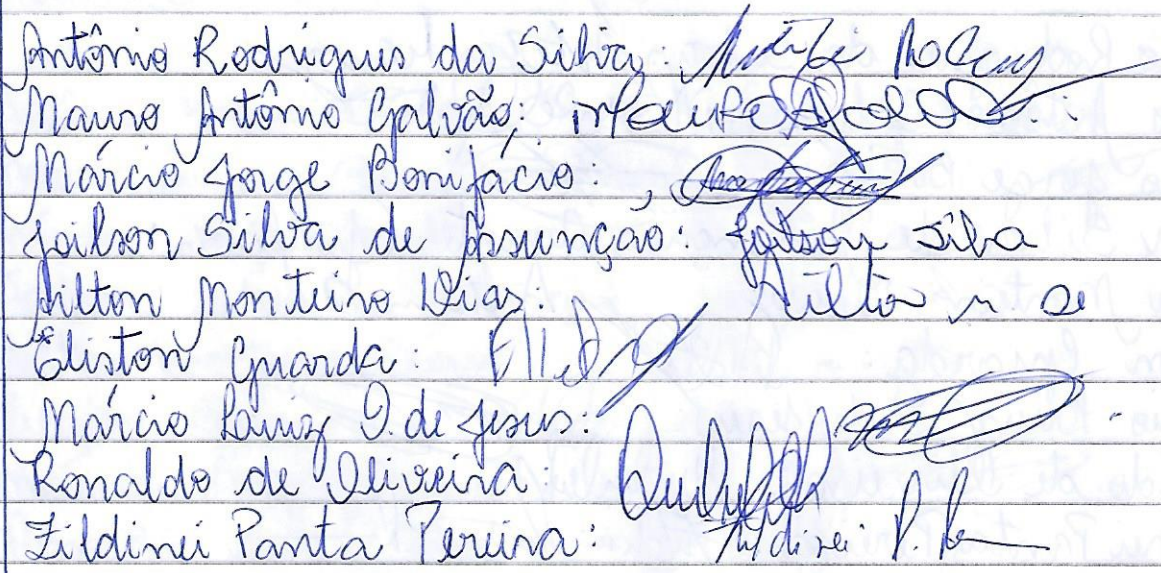 Antônio Rodrigues da Silva:
Mauro Antônio Galvão:
Márcio Jorge Bonifácio:
Joilson Silva de Assunção: Joilson Silva
Ailton Monteiro Dias: Ailton M. De
Eliston Guarda:
Márcio Luiz O. de Jesus:
Ronaldo de Oliveira:
Zildinei Panta Pereira: Zildinei P.